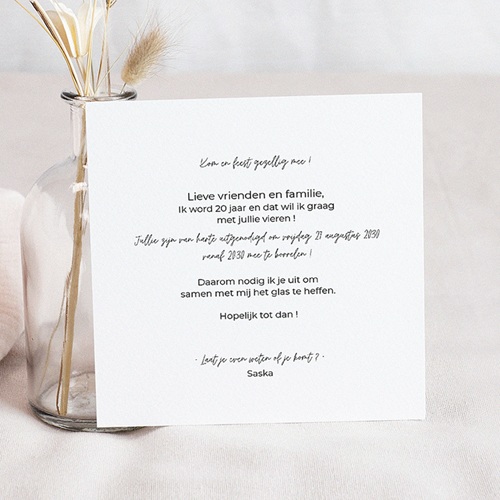 Kom en feest gezellig mee !
Lieve vrienden en familie,
Ik word 20 jaar en dat wil ik graag
met jullie vieren !
Jullie zijn van harte uitgenodigd om vrijdag 21 augustus 2030
vanaf 2030 mee te borrelen !
Daarom nodig ik je uit om
samen met mij het glas te heffen.
Hopelijk tot dan !
- Laat je even weten of je komt ? -
Saska